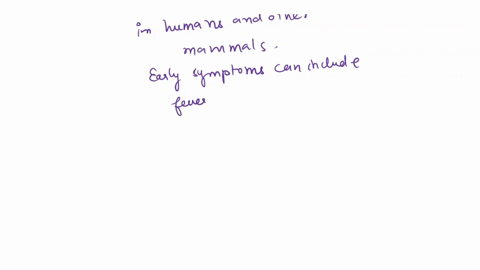 in humans and
mammals.
Early symptoms can include
fever